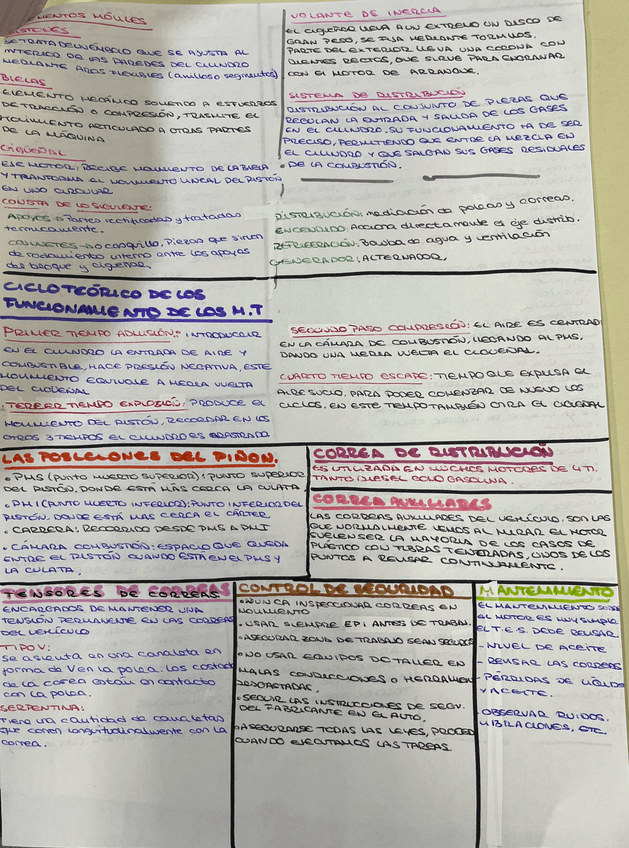 ELEMENTOS MÓVILES
PISTONES
SE TRATA DEL ÉMBOLO QUE SE AJUSTA AL
INTERIOR DE LAS PAREDES DEL CILINDRO
MEDIANTE AROS FLEXIBLES (anillos o segmentos)
BIELAS
ELEMENTO MECÁNICO SOMETIDO A ESFUERZOS
DE TRACCIÓN O COMPRESIÓN, TRASMITE EL
MOVIMIENTO ARTICULADO A OTRAS PARTES
DE LA MÁQUINA
CIGÜEÑAL
EJE MOTOR, RECIBE MOVIMIENTO DE LA BIELA
Y TRANFORMA EL MOVIMIENTO LINEAL DEL PISTÓN
EN UNO CIRCULAR
CONSTA DE LO SIGUIENTE:
APOYOS → Partes rectificadas y tratadas
termicamente.
COJINETES → o casquillo. Piezas que sirven
de rodamiento interno entre los apoyos
del bloque y cigueñal.
VOLANTE DE INERCIA
EL cigueñal LLEVA A UN EXTREMO UN DISCO DE
GRAN PESO, SE FIJA MEDIANTE TORNILLOS.
PARTE DEL EXTERIOR LLEVA UNA CORONA CON
DIENTES RECTOS, QUE SIRVE PARA ENGRANAR
CON EL MOTOR DE ARRANQUE.
SISTEMA DE DISTRIBUCIÓN
DISTRIBUCIÓN AL CONJUNTO DE PIEZAS QUE
REGULAN LA ENTRADA Y SALIDA DE LOS GASES
EN EL CILINDRO. SU FUNCIONAMIENTO HA DE SER
PRECISO, PERMITIENDO QUE ENTRE LA MEZCLA EN
EL CILINDRO Y QUE SALGAN SUS GASES RESIDUALES
DE LA COMBUSTIÓN.
DISTRIBUCIÓN: mediación de poleas y correas.
ENCENDIDO: Acciona directamente el eje distrib.
REFRIGERACIÓN: Bomba de agua y ventilación
GENERADOR: ALTERNADOR
CICLO TEÓRICO DE LOS
FUNCIONAMIENTO DE LOS M.T
PRIMER TIEMPO ADMISIÓN: INTRODUCIR
EN EL CILINDRO LA ENTRADA DE AIRE Y
COMBUSTIBLE, HACE PRESIÓN NEGATIVA, ESTE
MOVIMIENTO EQUIVALE A MEDIA VUELTA
DEL CIGUEÑAL
TERCER TIEMPO EXPLOSIÓN: PRODUCE EL
MOVIMIENTO DEL PISTÓN, RECORDAR EN LOS
OTROS 3 TEMPOS EL CILINDRO ES ARRASTRADO
SEGUNDO PASO COMPRESIÓN: EL AIRE ES CENTRAD
EN LA CÁMARA DE COMBUSTIÓN, LLEGANDO AL PMS,
DANDO UNA MEDIA VUELTA EL CIGUEÑAL.
CUARTO TIEMPO ESCAPE: TIEMPO QUE EXPULSA EL
AIRE SUCIO, PARA PODER COMENZAR DE NUEVO LOS
CICLOS, EN ESTE TEMPO TAMBIÉN GIRA EL CIGUEÑAL
LAS POSICIONES DEL PIÑON.
• PMS (PUNTO MUERTO SUPERIOR): PUNTO SUPERIOR
DEL PISTÓN, DONDE ESTÁ MÁS CERCA LA CULATA
• PMI (PUNTO MUERTO INFERIOR): PUNTO INFERIOR DEL
PISTÓN, DONDE ESTÁ MAS CERCA EL CÁRTER
• CARRERA: RECORRIDO DESDE PMS A PMI
• CÁMARA COMBUSTIÓN: ESPACIO QUE QUEDA
ENTRE EL PISTÓN CUANDO ESTÁ EN EL PMS Y
LA CULATA.
CORREA DE DISTRIBUCIÓN
ES UTILIZADA EN MUCHOS MOTORES DE 4T.
TANTO DIESEL COMO GASOLINA.
CORREA AUXILIARES
LAS CORREAS AUXILIARES DEL VEHÍCULO, SON LAS
QUE NORMALMENTE VEMOS AL MIRAR EL MOTOR
SUELEN SER LA MAYORIA DE LOS CASOS DE
PLÁSTICO CON FIBRAS TRENZADAS, UNOS DE LOS
PUNTOS A REVISAR CONTINUAMENTE.
TENSORES DE CORREAS
ENCARGADOS DE MANTENER UNA
TENSIÓN PERMANENTE EN LAS CORREAS
DEL VEHÍCULO
TIPO V:
Se asienta en una canaleta en
forma de V en la polea. Los costados
de la correa están en contacto
con la polea.
SERPENTINA:
Tiene una cantidad de canaletas
que corren longitudinalmente con la
correa.
CONTROL DE SEGURIDAD
• NUNCA INSPECCIONAR CORREAS EN
MOVIMIENTO
• USAR SIEMPRE EPI ANTES DE TRABAJ.
• ASEGURAR ZONA DE TRABAJO SEAN SEGUROS
• NO USAR EQUIPOS DE TALLER EN
MALAS CONDICIONES O HERRAMIEN
DESGASTADAS.
• SEGUIR LAS INSTRUCCIONES DE SEGU.
DEL FABRICANTE EN EL AUTO.
• ASEGURARSE TODAS LAS LEYES, PROCED
CUANDO EJECUTAMOS LAS TAREAS
MANTENIMIENTO
EL MANTENIMIENTO SOBRE
EL MOTOR ES MUY SIMPLE
EL T.E.S. DEBE REVISAR
- NIVEL DE ACEITE
- REVISAR LAS CORREAS
- PÉRDIDAS DE LÍQUIDO
Y ACEITE.
- OBSERVAR RUIDOS.
VIBRACIONES, ETC.